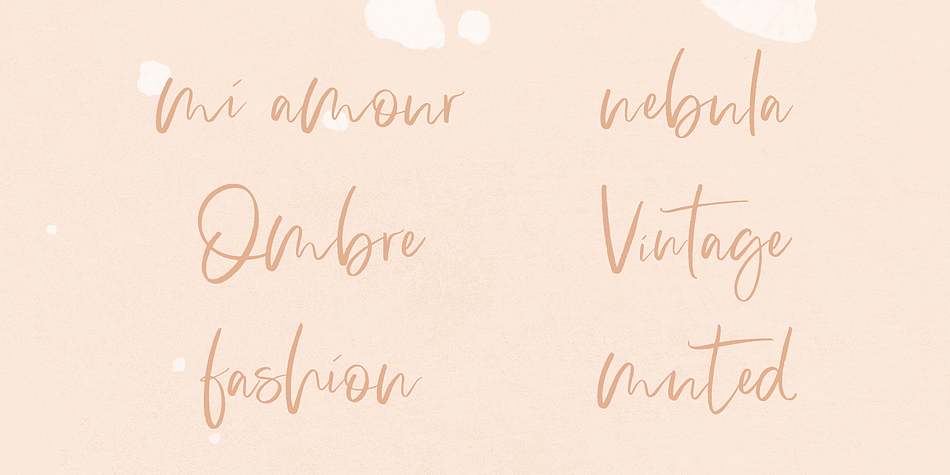 mi amour
nebula
Ombre
Vintage
fashion
muted